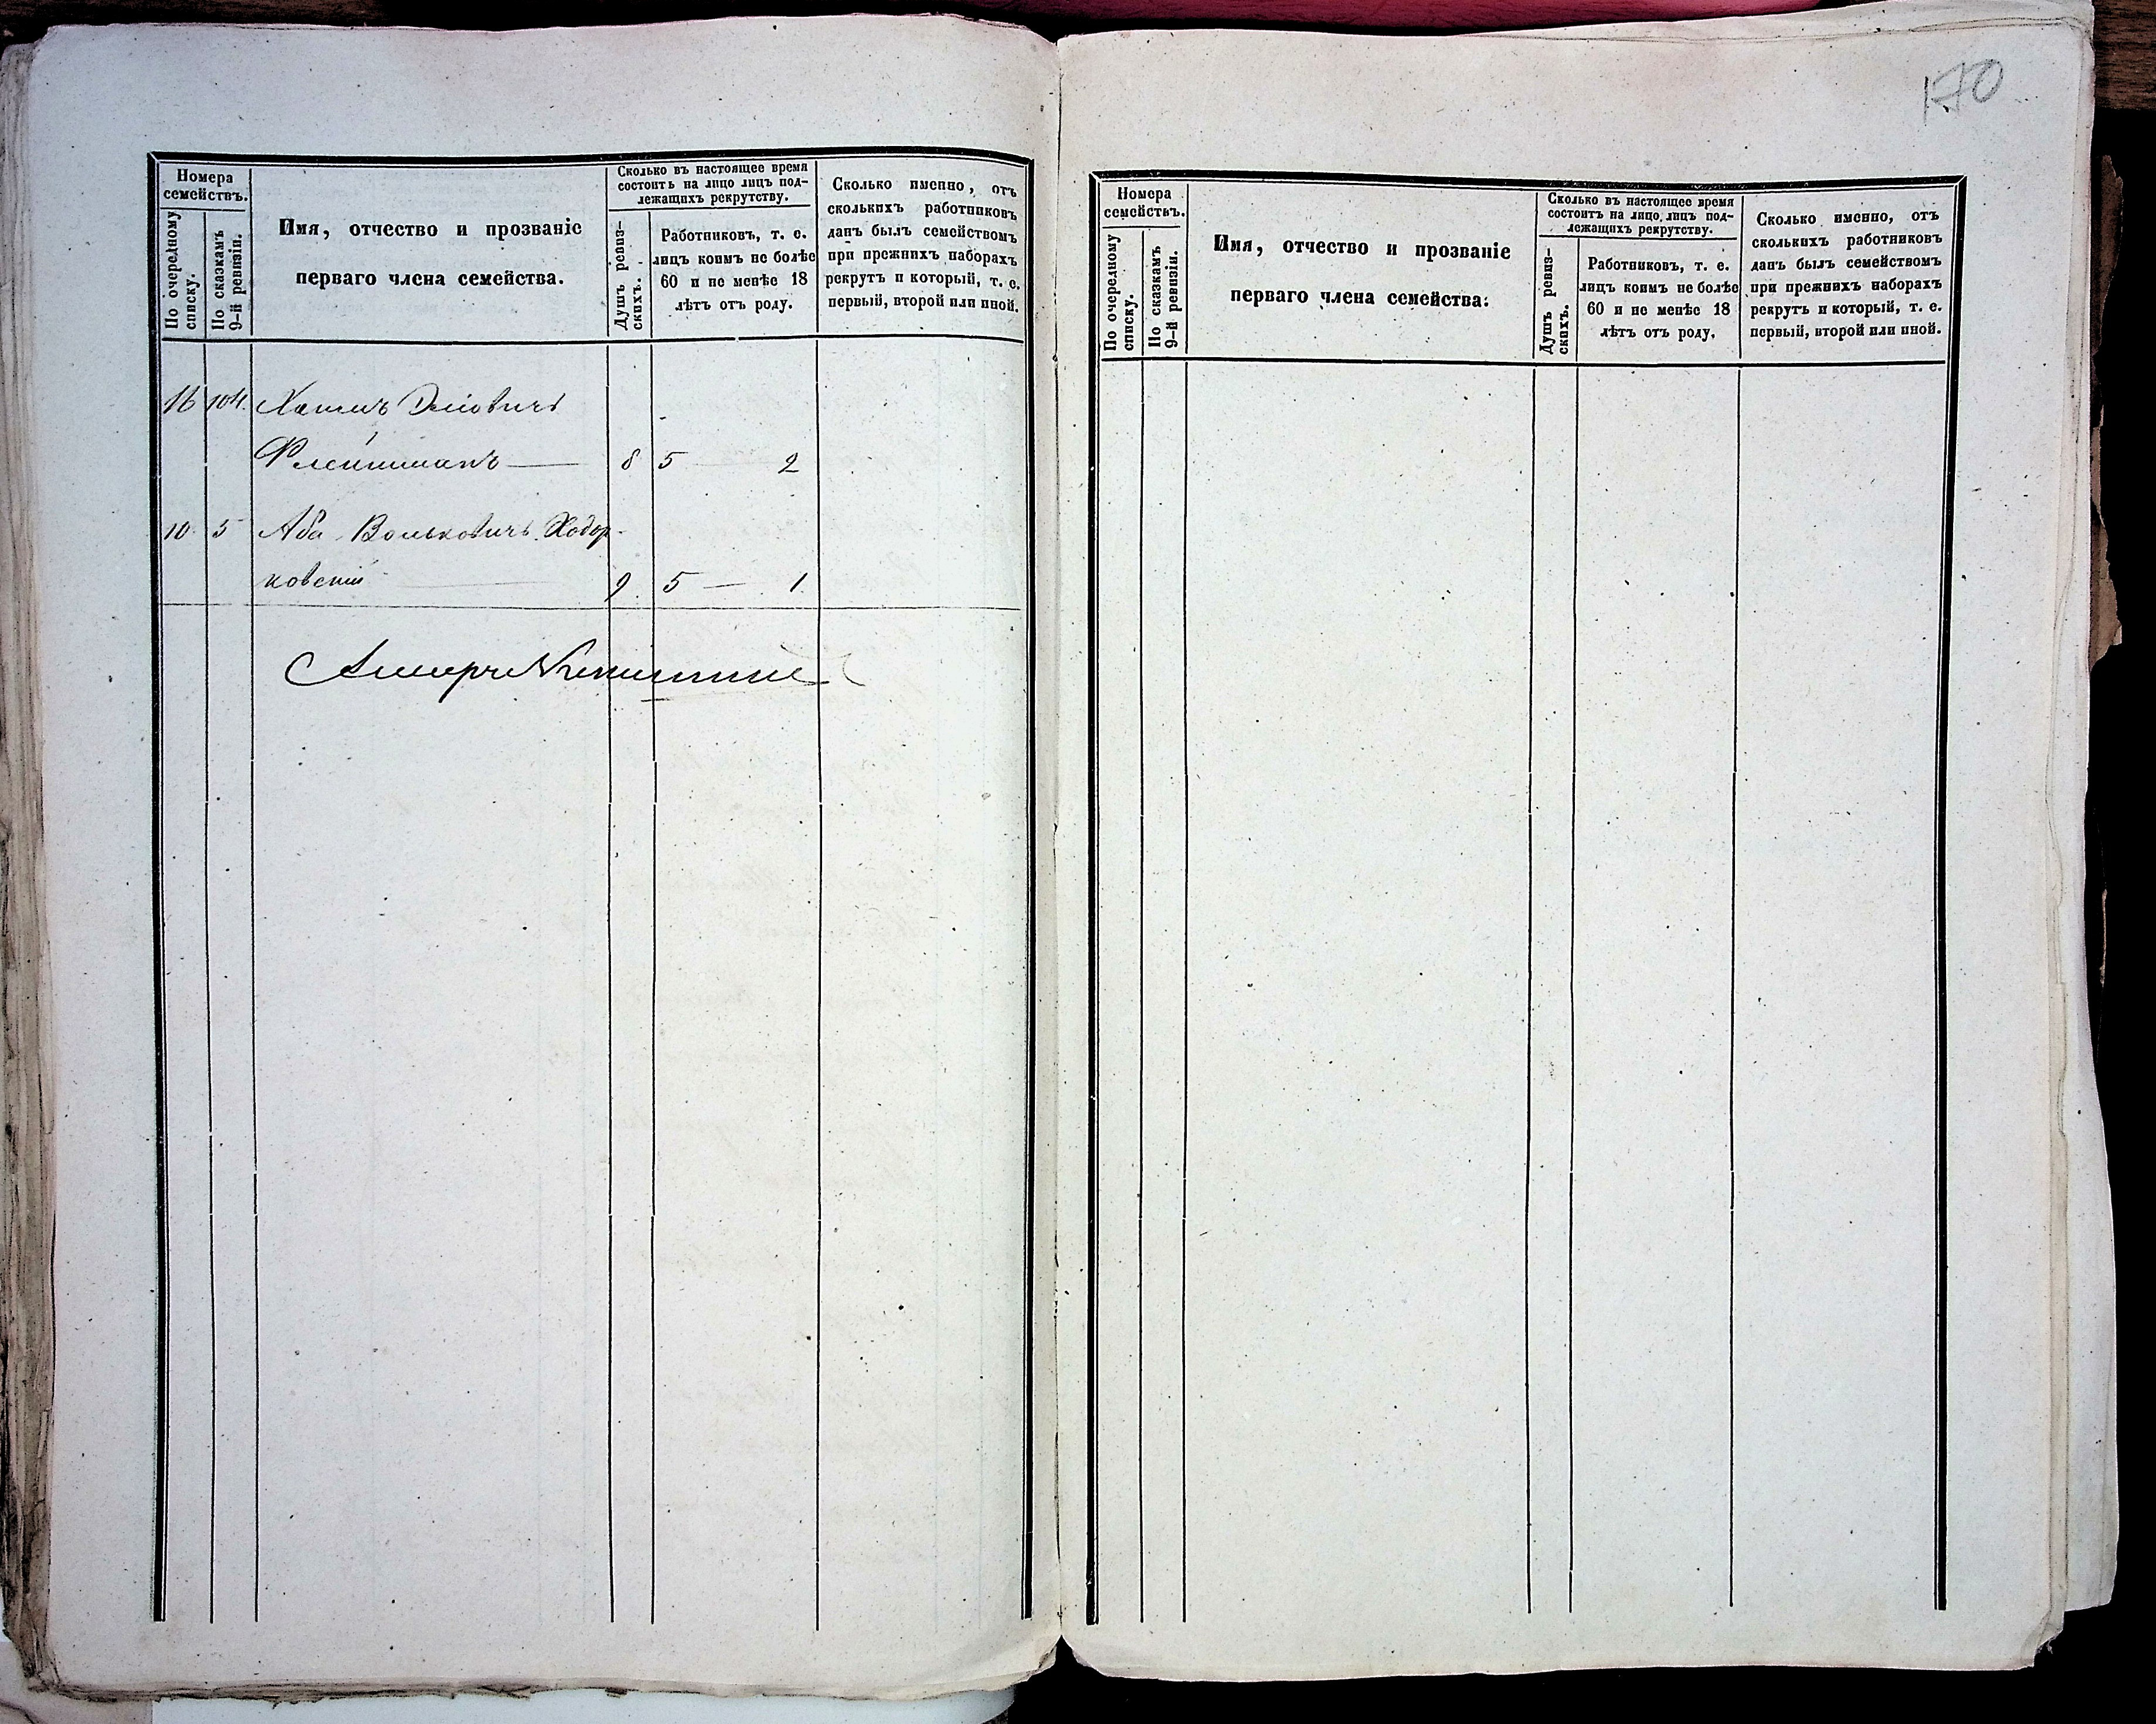 170
Номера
семействъ.
По очередному
списку.
По сказкамъ
9-й ревизіи.
Имя, отчество и прозваніе
перваго члена семейства.
Сколько въ настоящее время
состоитъ на лицо лицъ под-
лежащихъ рекрутству.
Душъ ревиз-
скихъ.
Работниковъ, т. е.
лицъ коимъ не болѣе
60 и не менѣе 18
лѣтъ отъ роду.
Сколько именно, отъ
сколькихъ работниковъ
данъ былъ семействомъ
при прежнихъ наборахъ
рекрутъ и который, т. е.
первый, второй или иной.
16 104.
Флейшманъ — 8 5 — 2
10 5 Аба Вольковичъ Ходор-
ковскій 9. 5 — 1.
Номера
семействъ.
По очередному
списку.
По сказкамъ
9-й ревизіи.
Имя, отчество и прозваніе
перваго члена семейства.
Сколько въ настоящее время
состоитъ на лицо лицъ под-
лежащихъ рекрутству.
Душъ ревиз-
скихъ.
Работниковъ, т. е.
лицъ коимъ не болѣе
60 и не менѣе 18
лѣтъ отъ роду.
Сколько именно, отъ
сколькихъ работниковъ
данъ былъ семействомъ
при прежнихъ наборахъ
рекрутъ и который, т. е.
первый, второй или иной.